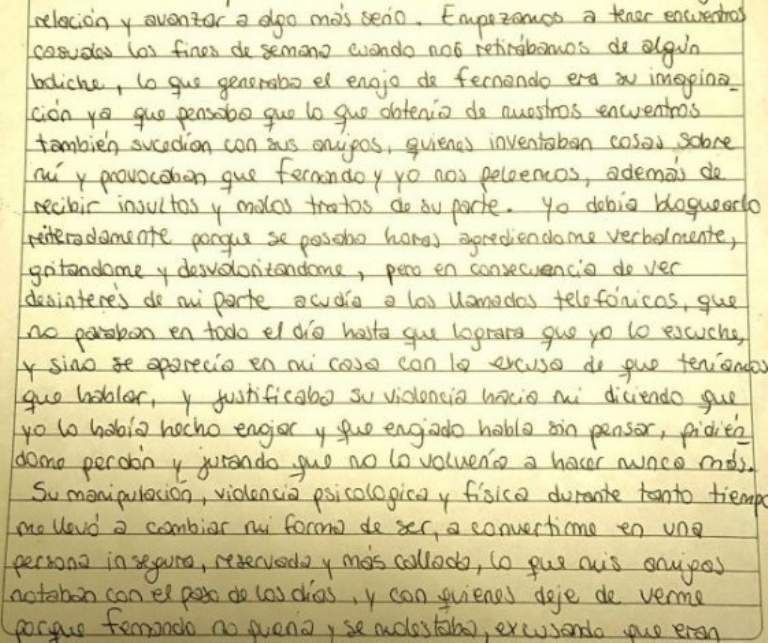 relación y avanzar a algo más serio. Empezamos a tener encuentros
casuales los fines de semana cuando nos retirábamos de algún
boliche, lo que generaba el enojo de fernando era su imagina_
ción ya que pensaba que lo que obtenía de nuestros encuentros
también sucedían con sus amigos, quienes inventaban cosas sobre
mí y provocaban que fernando y yo nos peleemos, además de
recibir insultos y malos tratos de su parte. Yo debía bloquearlo
reiteradamente porque se pasaba horas agrediendome verbalmente,
gritandome y desvalorizandome, pero en consecuencia de ver
desinterés de mi parte acudía a los llamados telefónicos, que
no paraban en todo el día hasta que lograra que yo lo escuche,
y sino se aparecía en mi casa con la excusa de que teníamos
que hablar, y justificaba su violencia hacia mi diciendo que
yo lo había hecho enojar y que enojado habla sin pensar, pidién_
dome perdón y jurando que no lo volvería a hacer nunca más.
Su manipulación, violencia psicologica y física durante tanto tiempo
me llevó a cambiar mi forma de ser, a convertirme en una
persona insegura, reservada y más callada, lo que mis amigas
notaban con el paso de los días, y con quienes deje de verme
porque fernando no quería y se molestaba, excusando que eran